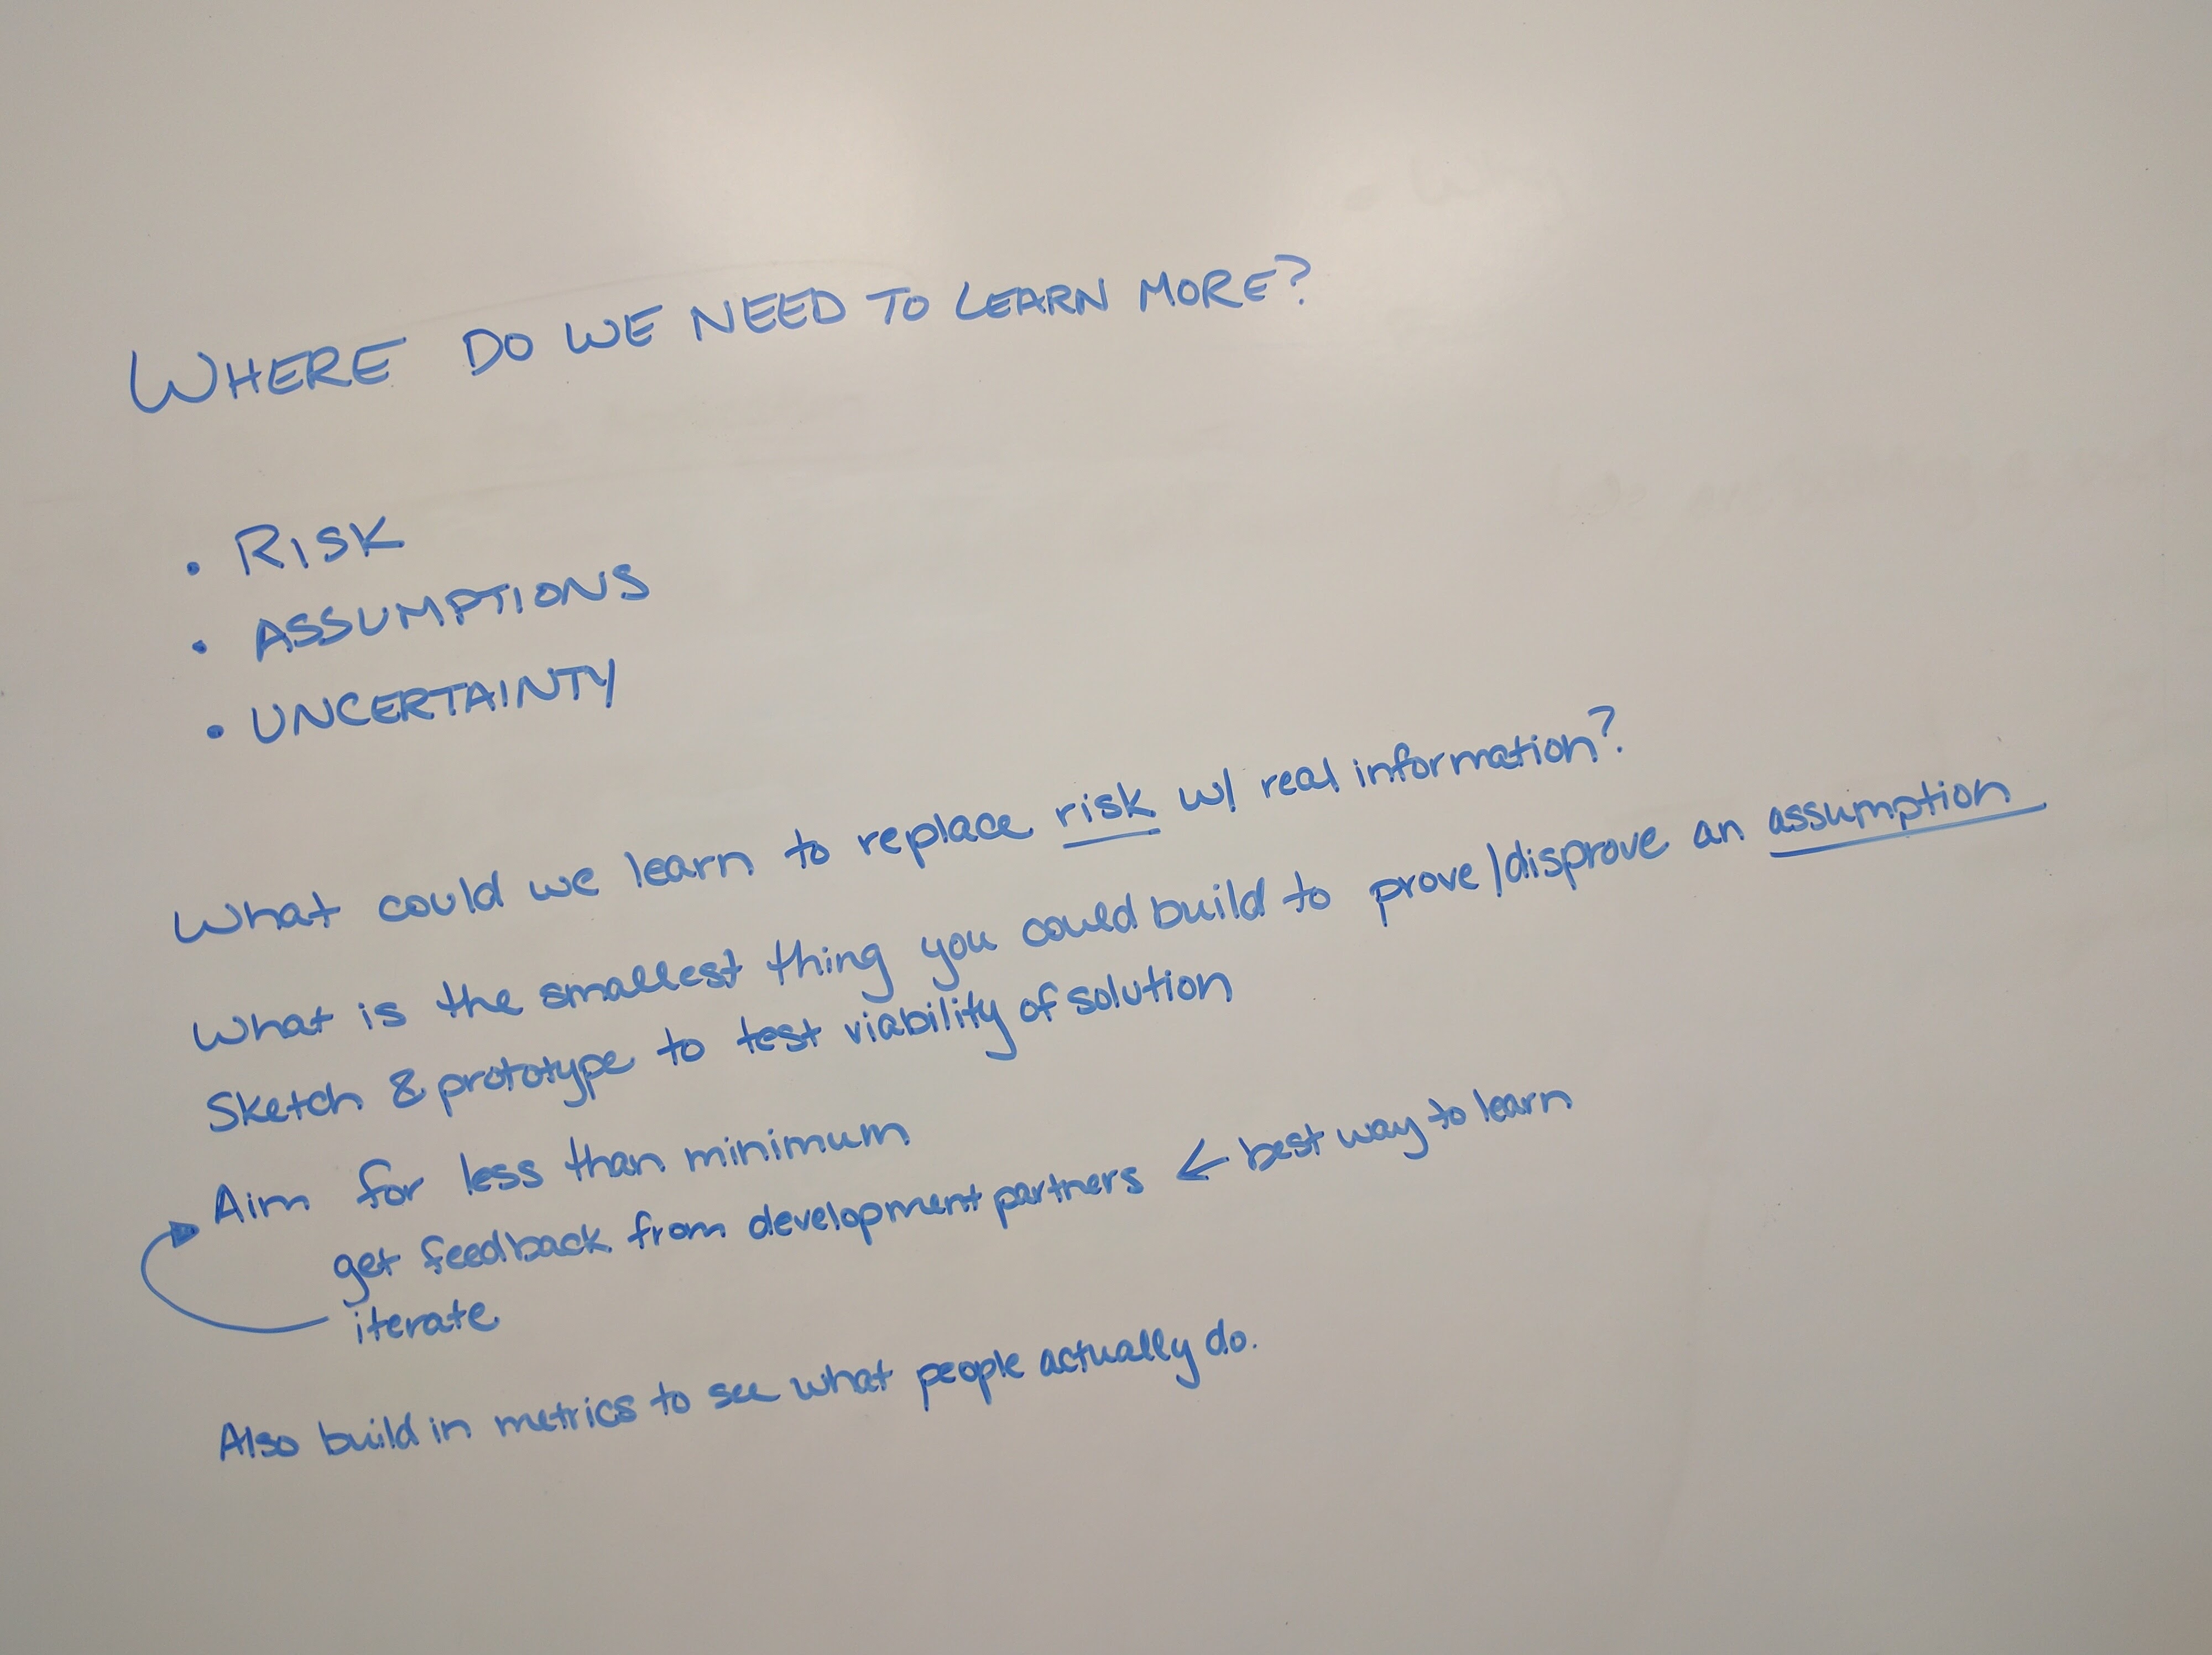 WHERE DO WE NEED TO LEARN MORE?
• RISK
• ASSUMPTIONS
• UNCERTAINTY
What could we learn to replace risk w/ real information?
What is the smallest thing you could build to prove/disprove an assumption
Sketch & prototype to test viability of solution
Aim for less than minimum
get feedback from development partners ← best way to learn
iterate
Also build in metrics to see what people actually do.